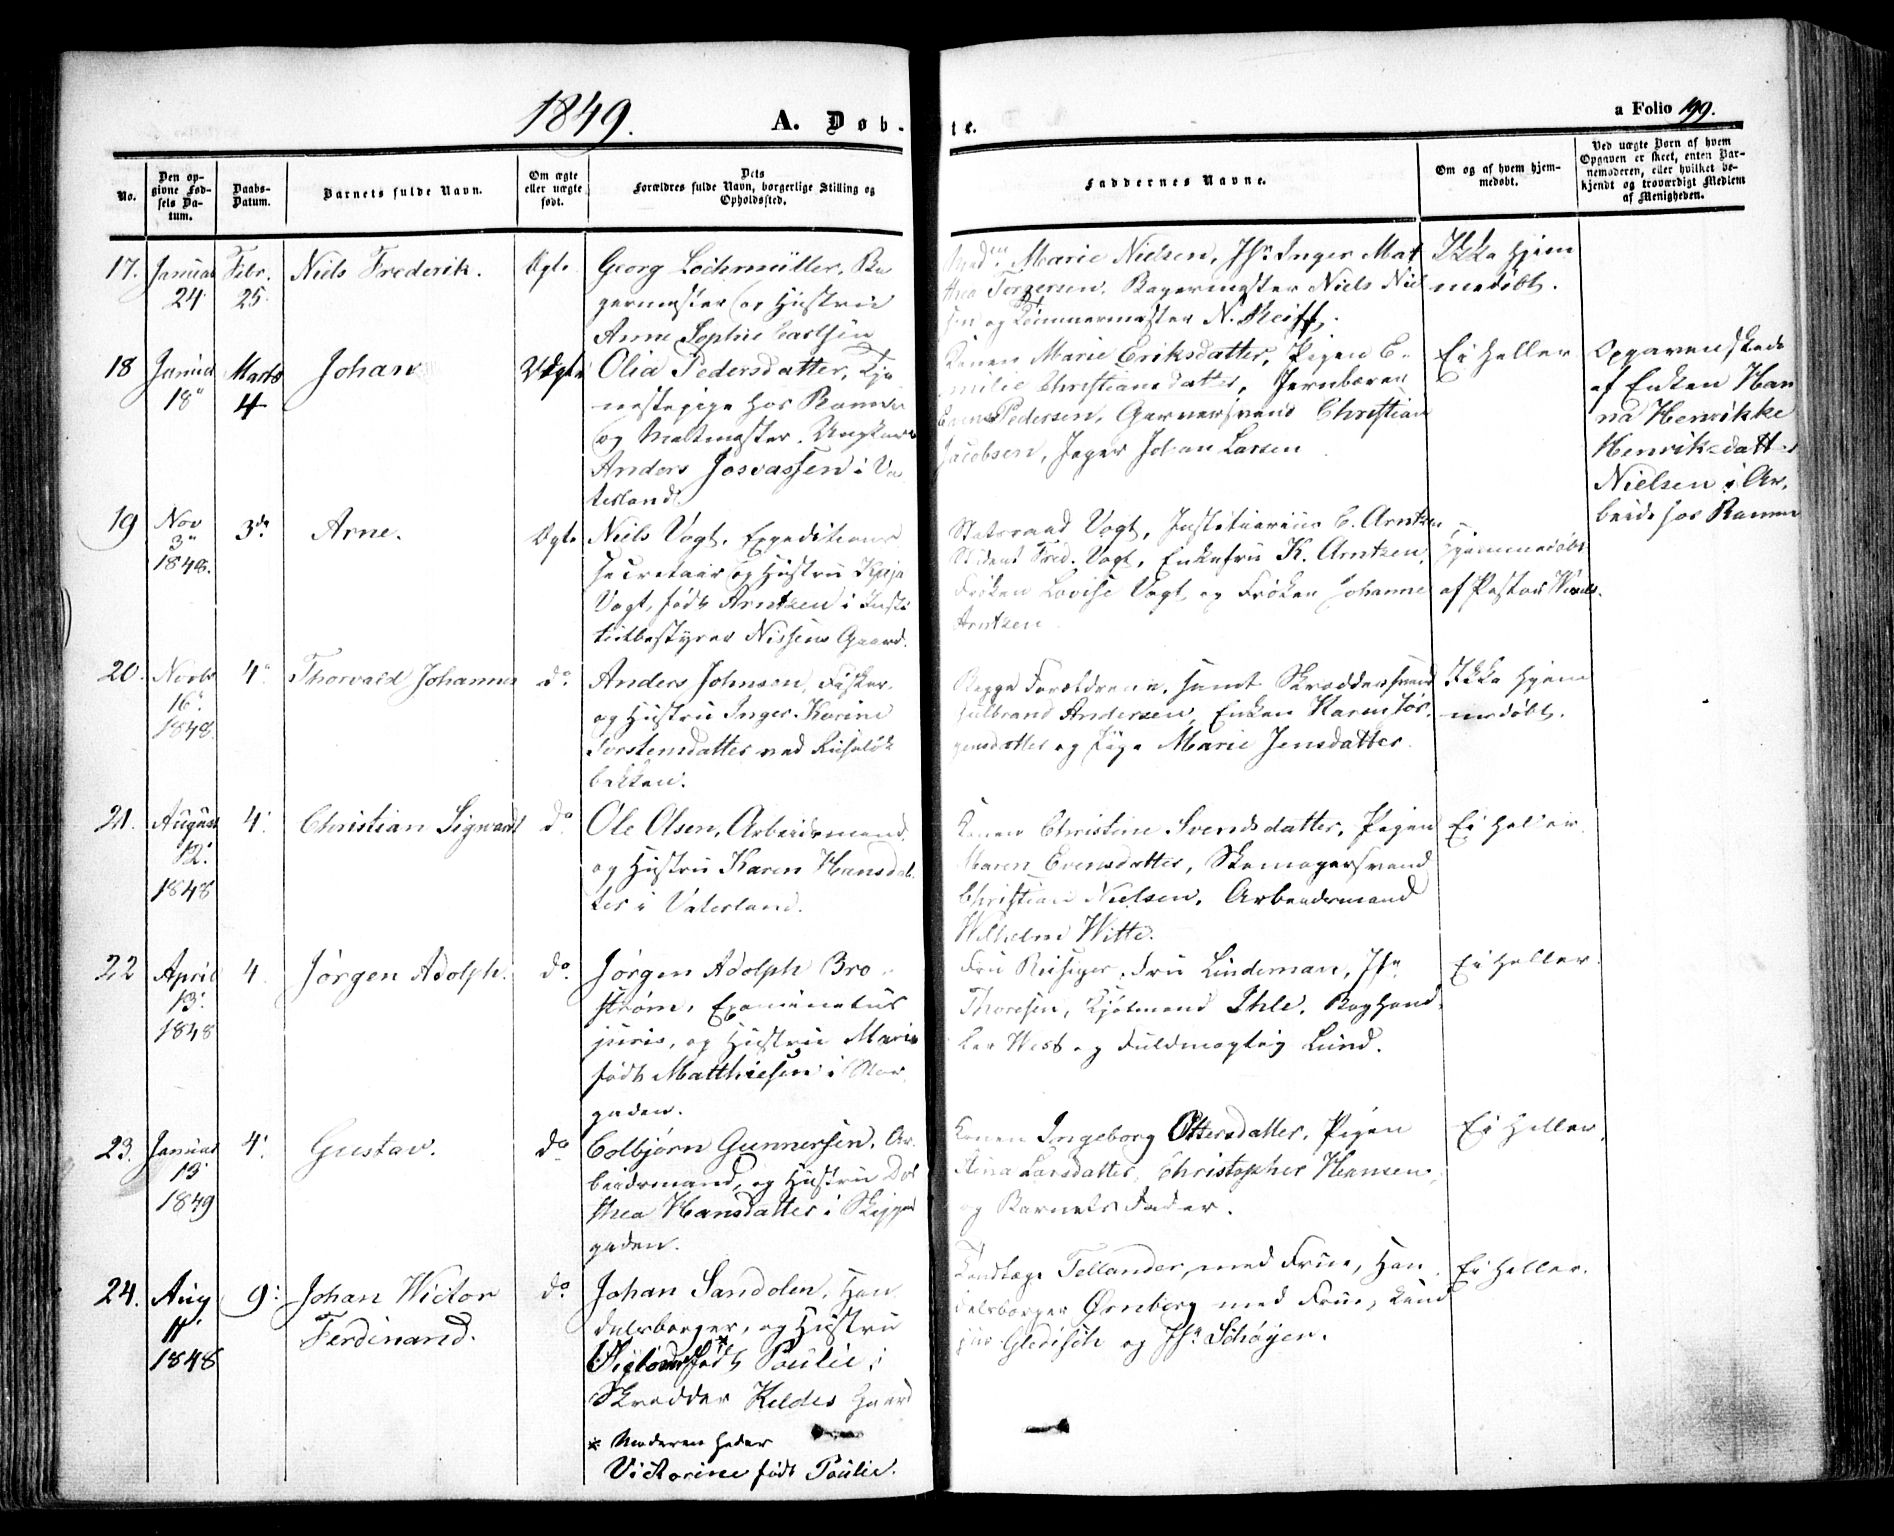 1849.
A. Døb-
te.
a Folio 199.
No.
Den op-
givne Fød-
sels Da-
tum.
Daabs-
Datum.
Barnets fulde Navn.
Om ægte
eller uægte
født.
Dets
Forældres fulde Navn, borgerlige Stilling og
Opholdssted.
Faddernes Navne.
Om og af hvem hjem-
medøbt.
Ved uægte Børn af hvem
Opgaven er skeet, enten Bar-
nemoderen, eller hvilket be-
kjendt og troværdigt Medlem
af Menigheden.
17.
Januar
24
Febr.
25.
Niels Frederik.
Ægte
Georg Lochmüller, Ba
germester og Hustrue
Anne Sophie Carlsen
Mad. Marie Nielsen, Jfr. Inger Mat
thea Torgersen, Bagermester Niels Niel
sen og Tømmermester N.
Ikke hjem
medøbt.
18
Januar
18"
Marts
4
Johan
Uægte
Olia Pedersdatter, Tje
nestepige hos
og Ungkarl
Anders Josvassen i Va
terland.
Konen Marie Eriksdatter, Pigen E-
milie Christiansdatter, Jernbærer
Pedersen, Garversvend Christian
Jacobsen, Jæger Johan Larsen
Ei heller
Opgaven skede
af Enken Han
na Henrikke
Henriksdatter
Nielsen i Ar-
beide hos
19
Nov
3"
1848.
3de
Arne.
Ægte
Niels Vogt, Expeditions
secretair og Hustru Kaja
Vogt, født Arntzen i Insti
tutbestyrer Nissens Gaard.
Statsraad Vogt, Justitiarius C. Arntzen
Student Fred. Vogt, Enkefru K. Arntzen,
Frøken Lovise Vogt, og Frøken Johanne
Arntzen
Hjemmedøbt
af Pastor
20.
Novbr
16"
1848.
4"
Thorvald Johannes
do
Anders Johnsen, Fisker,
og Hustru Inger Karine
Torstensdatter ved Ruseløk
bakken.
Begge Forældrene, samt Skreddersvend
Gulbrand Andersen, Enken Karen Jør-
gensdatter og Pige Marie Jensdatter.
Ikke hjem
medøbt.
21.
August
12.
1848
4.
Christian Sigward
do
Ole Olsen, Arbeidsmand,
og Hustru Karen Hansdat-
ter i Vaterland.
Konen Christine Svendsdatter, Pigen
Maren Evensdatter, Skomagersvend
Christian Nielsen, Arbeidsmand
Wilhelm Witte.
Ei heller.
22
April
13.
1848
4
Jørgen Adolph.
do
Jørgen Adolph Bro-
strøm, Examinatus
juris, og Hustrue Marie
født Matthiesen i
gaden.
Fru Reisiger, Fru Lindeman, Jfr
Thoresen, Kjøbmand Ihle, Boghand-
ler West og Fuldmægtig Lund.
Ei heller.
23.
Januar
13.
1849
4.
Gustav.
do
Colbjørn Gunnersen, Ar-
beidsmand, og Hustrue Dor
thea Hansdatter i Skipper
gaden.
Konen Ingeborg Ottersdatter, Pigen
Stina Larsdatter, Christopher Hansen,
og Barnets Fader.
Ei heller.
24.
Aug
11.
1848
9.
Johan Wictor
Ferdinand.
do
Johan Sandolen, Han
delsborger, og Hustru
født Paulie i
Skredder Keldes Gaard
* Moderen heder
Victorine født Paulie.
Tandlæge Tellander, med Frue, Han
delsborger Ørnberg med Frue,
Gleditsch og Jfr. Schøyen.
Ei heller.